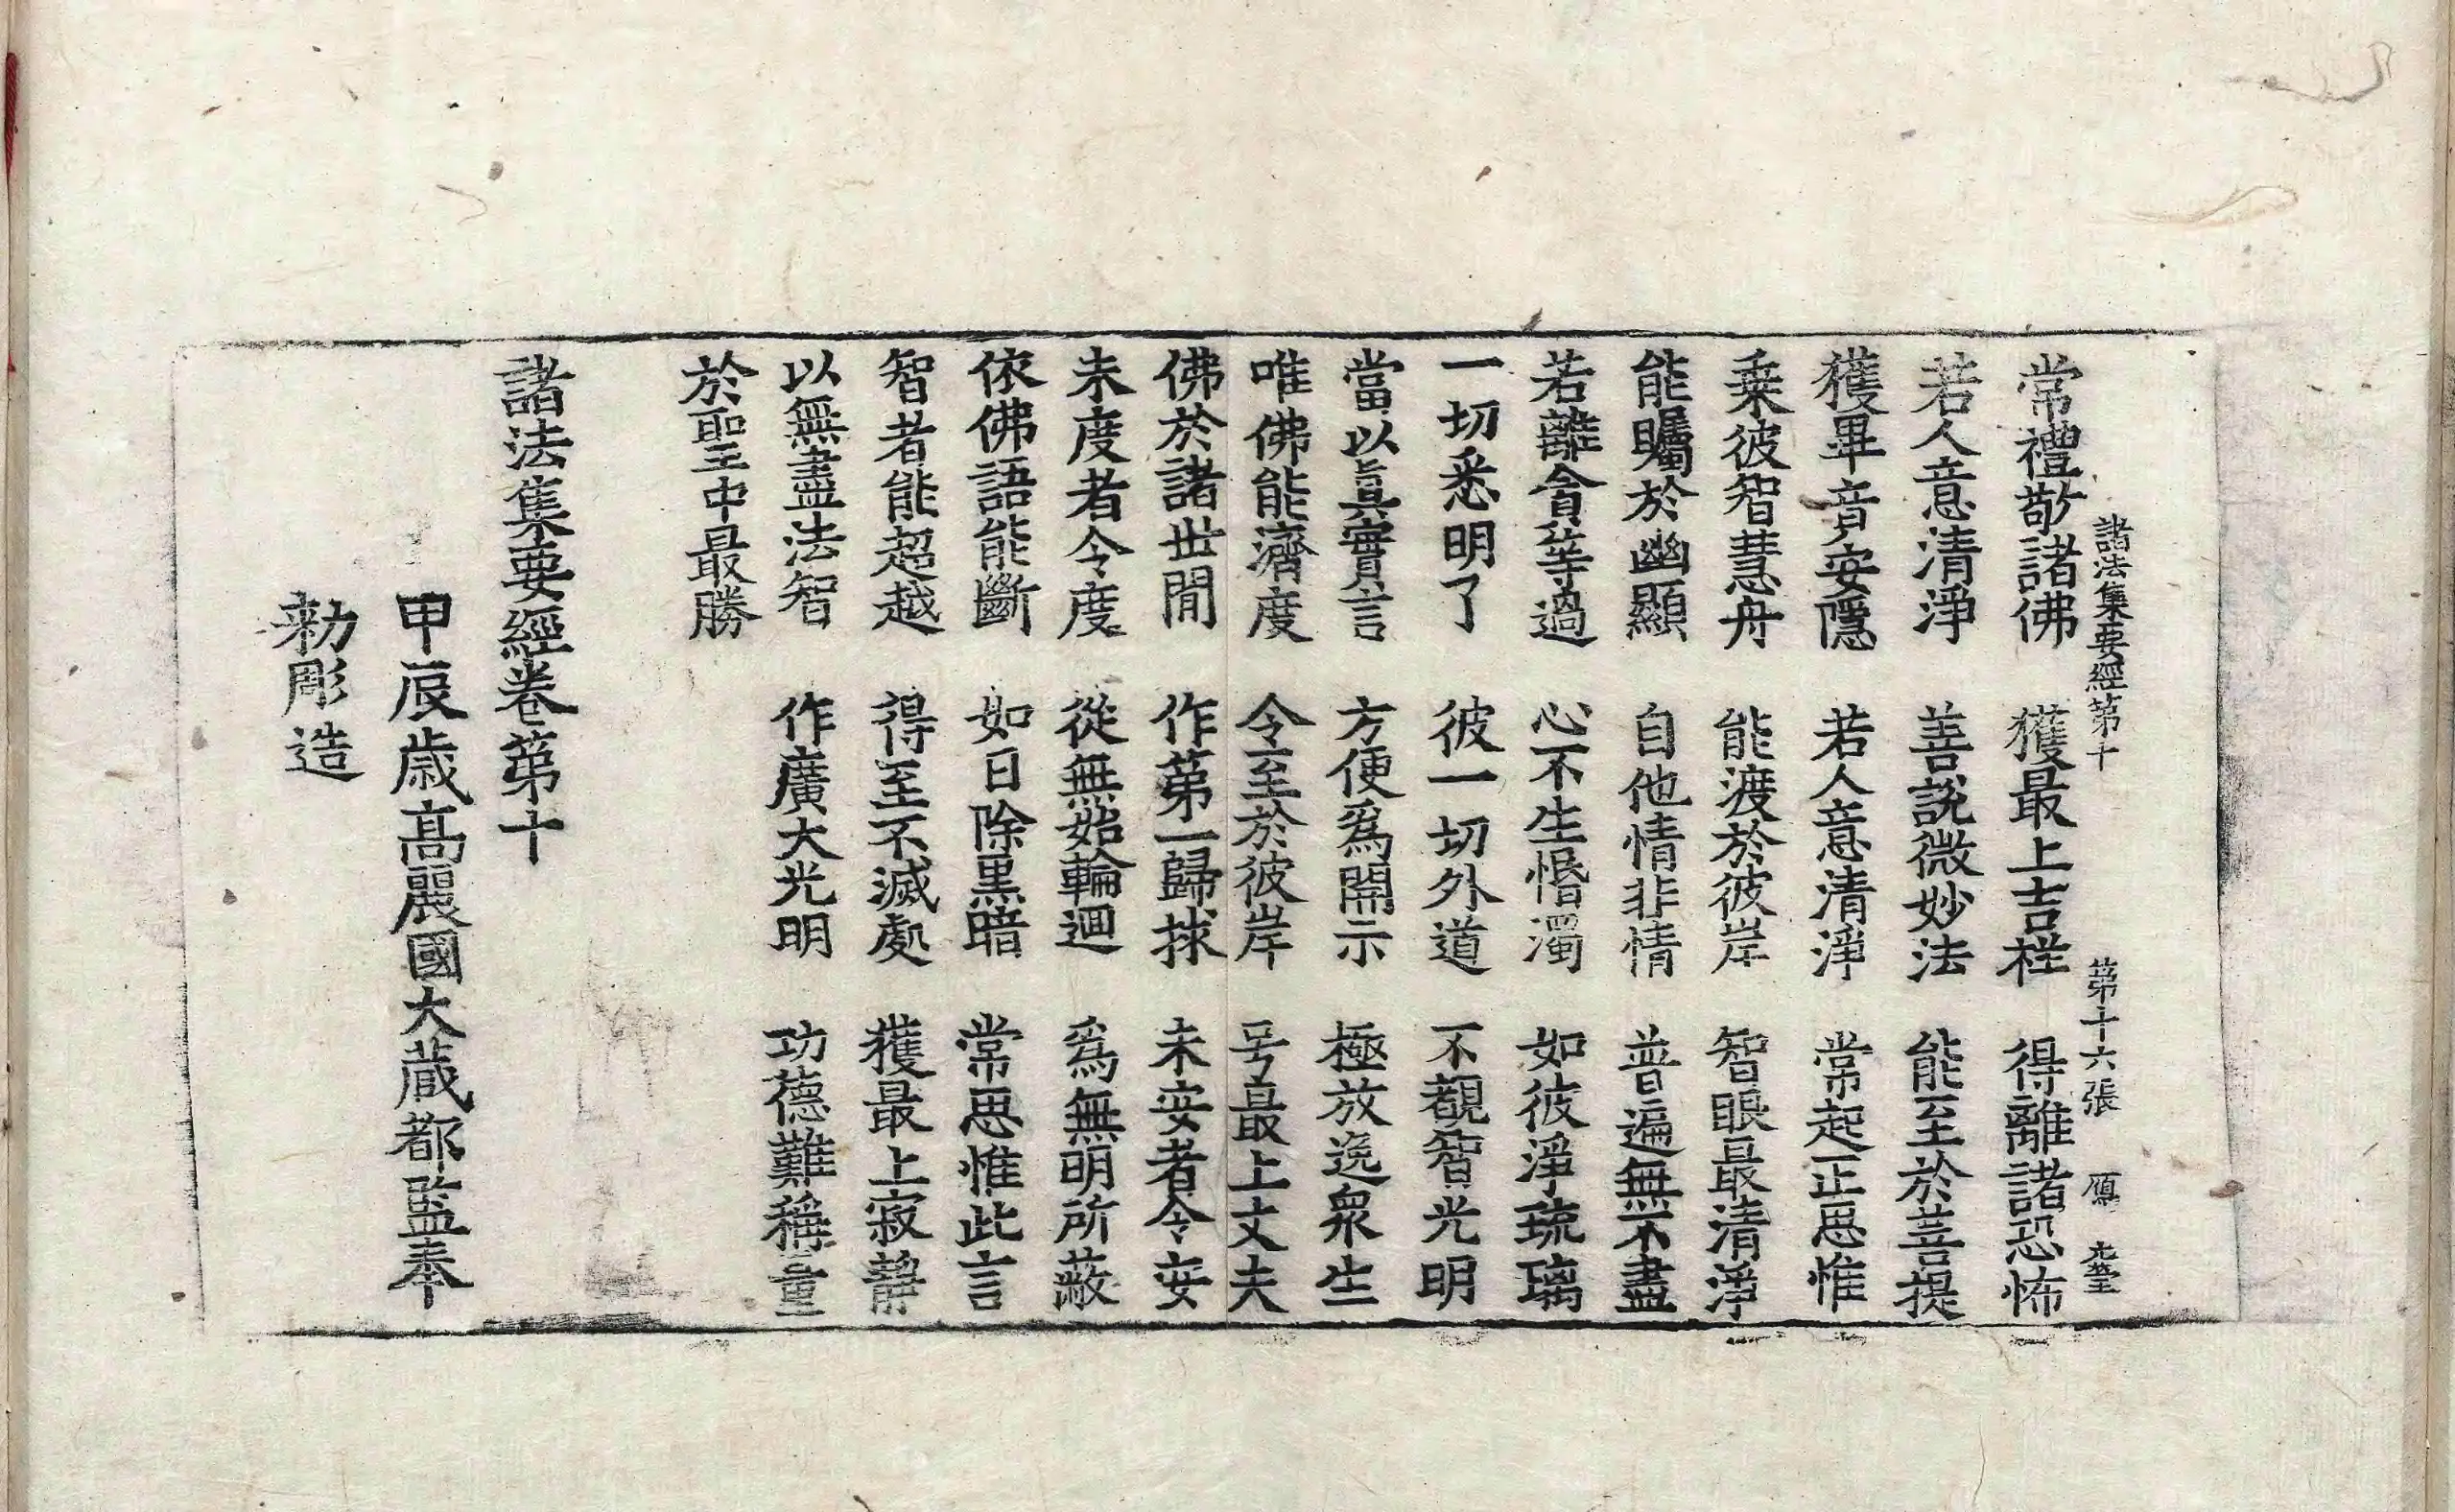 諸法集要經第十　第十六張　鴈
常禮敬諸佛　獲最上吉祥　得離諸恐怖
若人意清淨　善說微妙法　能至於菩提
獲畢竟安隱　若人意清淨　常起正思惟
乗彼智慧舟　能渡於彼岸　智眼最清淨
能矚於幽顯　自他情非情　普遍無不盡
若離貪等過　心不生惛濁　如彼淨琉璃
一切悉明了　彼一切外道　不覩智光明
當以眞實言　方便爲開示　極放逸衆生
唯佛能濟度　令至於彼岸　号最上丈夫
佛於諸世閒　作第一歸救　未安者令安
未度者令度　從無始輪迴　爲無明所蔽
依佛語能斷　如日除黒暗　常思惟此言
智者能超越　得至不滅處　獲最上寂靜
以無盡法智　作廣大光明　功德難稱量
於聖中最勝
諸法集要經卷第十
甲辰歲高麗國大藏都監奉
勑彫造